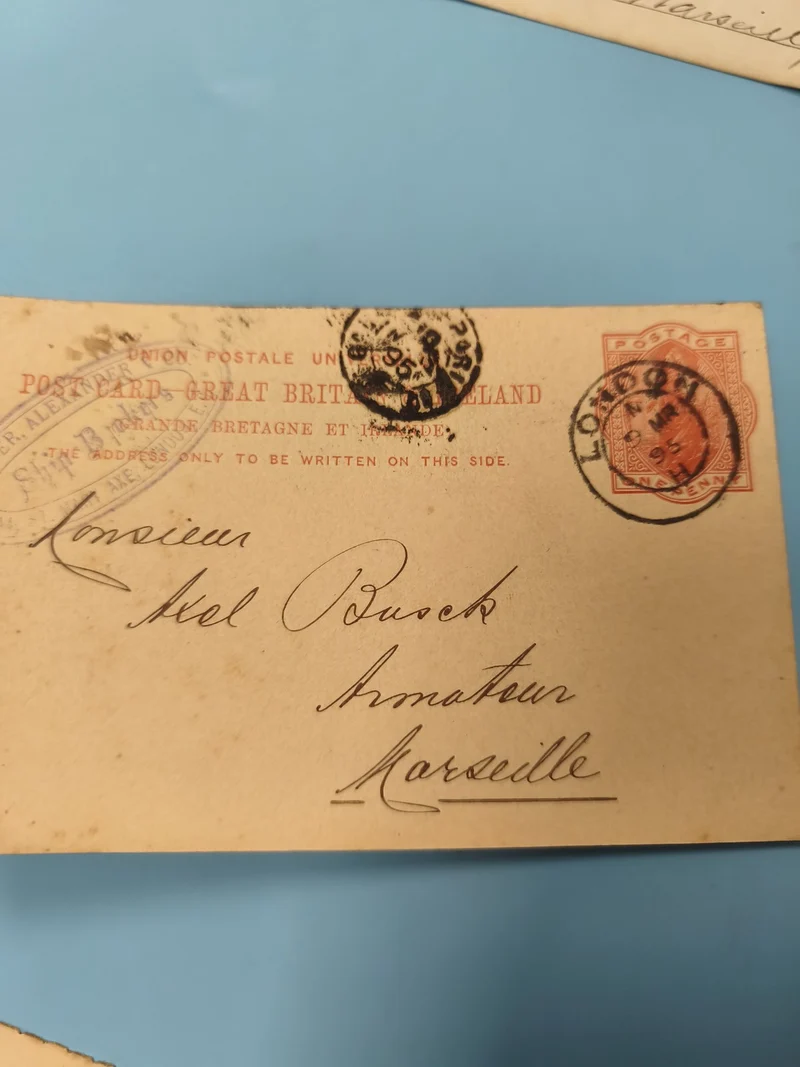 Marseille
UNION POSTALE UN
POST CARD—GREAT BRITAIN IRELAND
GRANDE BRETAGNE ET IRLANDE
THE ADDRESS ONLY TO BE WRITTEN ON THIS SIDE.
ALEXANDER
Ship Brokers
AXE, LONDON, E.
POSTAGE
ONE PENNY
LONDON
MR 9
95
H
95
Monsieur
Axel Busck
Armateur
Marseille